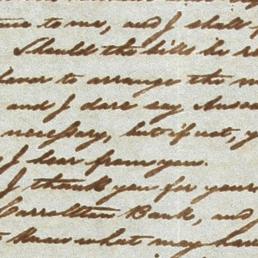 to me, and I shall
Should the bills be re
to arrange the m
and I dare say Susan
necessary, but if not, y
I hear from you.
I thank you for yours
Carrollton Bank, and
know what may have